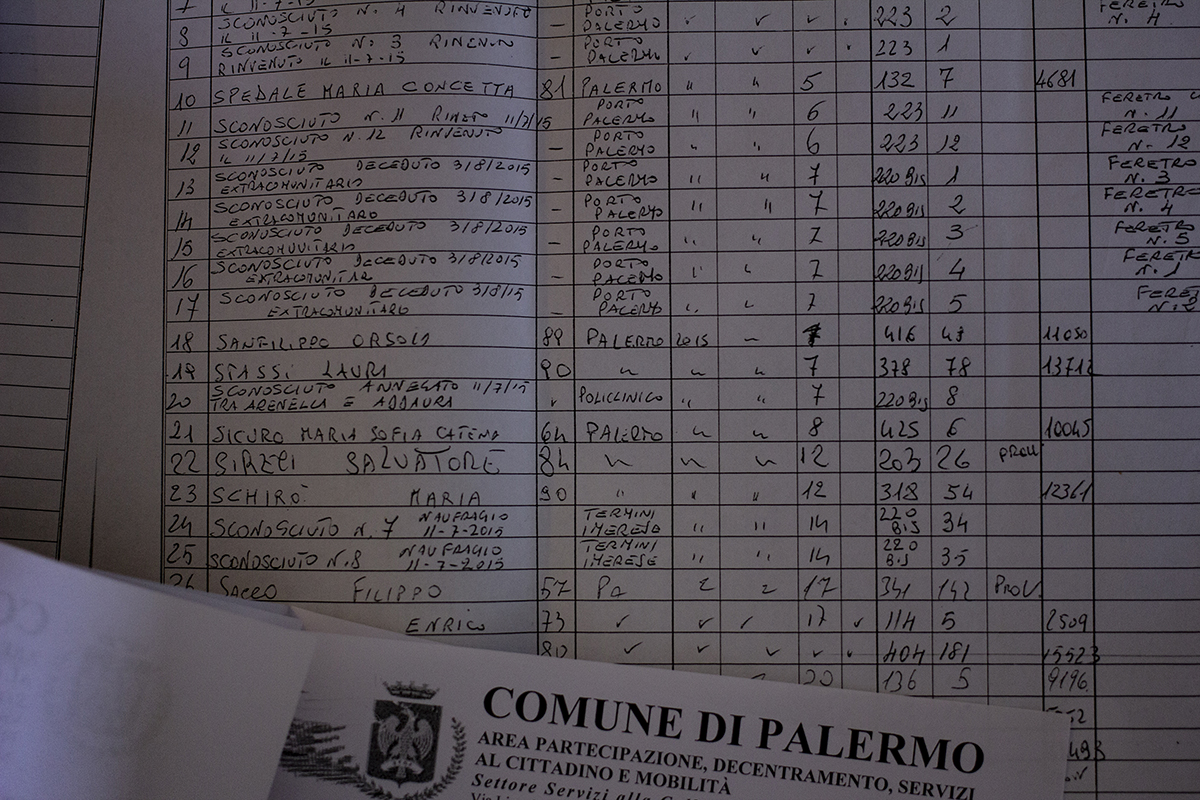 7 IL 11-7-15
8 SCONOSCIUTO N. 4 RINVENUTO IL 11-7-15 — PORTO PALERMO 223 2 FERETRO N. 4
9 SCONOSCIUTO N. 3 RINVENUTO IL 11-7-15 — PORTO PALERMO 223 1
10 SPEDALE MARIA CONCETTA 81 PALERMO " " 5 132 7 4681
11 SCONOSCIUTO N. 11 11/7/15 — PORTO PALERMO " " 6 223 11 FERETRO N. 11
12 SCONOSCIUTO N. 12 RINVENUTO IL 11/7/15 — PORTO PALERMO " " 6 223 12 FERETRO N. 12
13 SCONOSCIUTO DECEDUTO 3/8/2015 EXTRACOMUNITARIO — PORTO PALERMO " " 7 220BIS 1 FERETRO N. 3
14 SCONOSCIUTO DECEDUTO 3/8/2015 EXTRACOMUNITARO — PORTO PALERMO " " 7 220BIS 2 FERETRO N. 4
15 SCONOSCIUTO DECEDUTO 3/8/2015 EXTRACOMUNITARIO — PORTO PALERMO " " 7 220BIS 3 FERETRO N. 5
16 SCONOSCIUTO DECEDUTO 3/8/2015 — PORTO PALERMO " " 7 220BIS 4 FERETR N. 1
17 SCONOSCIUTO DECEDUTO 3/8/15 EXTRACOMUNITARO — PORTO PALERMO " " 7 220BIS 5 FERET N. 2
18 SANFILIPPO ORSOLA 89 PALERMO 2015 7 416 43 11050
19 STASSI LAURA 90 " " " 7 378 78 13712
20 SCONOSCIUTO ANNEGATO 11/7/15 TRA ARENELLA E ADDAURA POLICLINICO " " 7 220BIS 8
21 SICURO MARIA SOFIA CATENA 64 PALERMO " " 8 425 6 10045
22 SIRECI SALVATORE 84 " " " 12 203 26 PROV
23 SCHIRÒ MARIA 90 " " " 12 318 54 12361
24 SCONOSCIUTO N. 7 NAUFRAGIO 11-7-2015 TERMINI IMERESE " " 14 220 BIS 34
25 SCONOSCIUTO N. 8 NAUFRAGIO 11-7-2015 TERMINI IMERESE " " 14 220 BIS 35
26 SACCO FILIPPO 57 PA 17 341 142 PROV.
ENRICO 73 17 114 5 2509
80 404 181 15523
20 136 5 9196
COMUNE DI PALERMO
AREA PARTECIPAZIONE, DECENTRAMENTO, SERVIZI
AL CITTADINO E MOBILITÀ
Settore Servizi alla